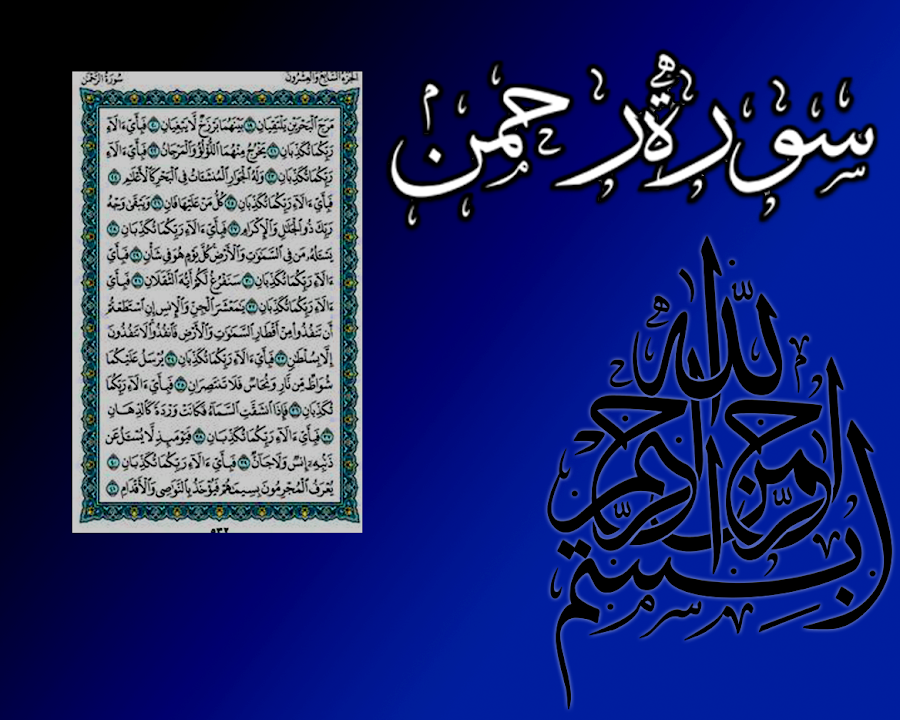 سورة رحمن
الجزء السابع والعشرون سورة الرحمن
مَرَجَ ٱلْبَحْرَيْنِ يَلْتَقِيَانِ ١٩ بَيْنَهُمَا بَرْزَخٌ لَّا يَبْغِيَانِ ٢٠ فَبِأَيِّ ءَالَآءِ
رَبِّكُمَا تُكَذِّبَانِ ٢١ يَخْرُجُ مِنْهُمَا ٱللُّؤْلُؤُ وَٱلْمَرْجَانُ ٢٢ فَبِأَيِّ ءَالَآءِ
رَبِّكُمَا تُكَذِّبَانِ ٢٣ وَلَهُ ٱلْجَوَارِ ٱلْمُنشَـَٔاتُ فِي ٱلْبَحْرِ كَٱلْأَعْلَٰمِ ٢٤
فَبِأَيِّ ءَالَآءِ رَبِّكُمَا تُكَذِّبَانِ ٢٥ كُلُّ مَنْ عَلَيْهَا فَانٍ ٢٦ وَيَبْقَىٰ وَجْهُ
رَبِّكَ ذُو ٱلْجَلَٰلِ وَٱلْإِكْرَامِ ٢٧ فَبِأَيِّ ءَالَآءِ رَبِّكُمَا تُكَذِّبَانِ ٢٨
يَسْـَٔلُهُۥ مَن فِي ٱلسَّمَٰوَٰتِ وَٱلْأَرْضِ كُلَّ يَوْمٍ هُوَ فِي شَأْنٍ ٢٩ فَبِأَيِّ
ءَالَآءِ رَبِّكُمَا تُكَذِّبَانِ ٣٠ سَنَفْرُغُ لَكُمْ أَيُّهَ ٱلثَّقَلَانِ ٣١ فَبِأَيِّ
ءَالَآءِ رَبِّكُمَا تُكَذِّبَانِ ٣٢ يَٰمَعْشَرَ ٱلْجِنِّ وَٱلْإِنسِ إِنِ ٱسْتَطَعْتُمْ
أَن تَنفُذُوا۟ مِنْ أَقْطَارِ ٱلسَّمَٰوَٰتِ وَٱلْأَرْضِ فَٱنفُذُوا۟ لَا تَنفُذُونَ
إِلَّا بِسُلْطَٰنٍ ٣٣ فَبِأَيِّ ءَالَآءِ رَبِّكُمَا تُكَذِّبَانِ ٣٤ يُرْسَلُ عَلَيْكُمَا
شُوَاظٌ مِّن نَّارٍ وَنُحَاسٌ فَلَا تَنتَصِرَانِ ٣٥ فَبِأَيِّ ءَالَآءِ رَبِّكُمَا
تُكَذِّبَانِ ٣٦ فَإِذَا ٱنشَقَّتِ ٱلسَّمَآءُ فَكَانَتْ وَرْدَةً كَٱلدِّهَانِ
٣٧ فَبِأَيِّ ءَالَآءِ رَبِّكُمَا تُكَذِّبَانِ ٣٨ فَيَوْمَئِذٍ لَّا يُسْـَٔلُ عَن
ذَنۢبِهِۦٓ إِنسٌ وَلَا جَآنٌّ ٣٩ فَبِأَيِّ ءَالَآءِ رَبِّكُمَا تُكَذِّبَانِ ٤٠
يُعْرَفُ ٱلْمُجْرِمُونَ بِسِيمَٰهُمْ فَيُؤْخَذُ بِٱلنَّوَٰصِي وَٱلْأَقْدَامِ ٤١
٥٣٢
بسم الله الرحمن الرحيم